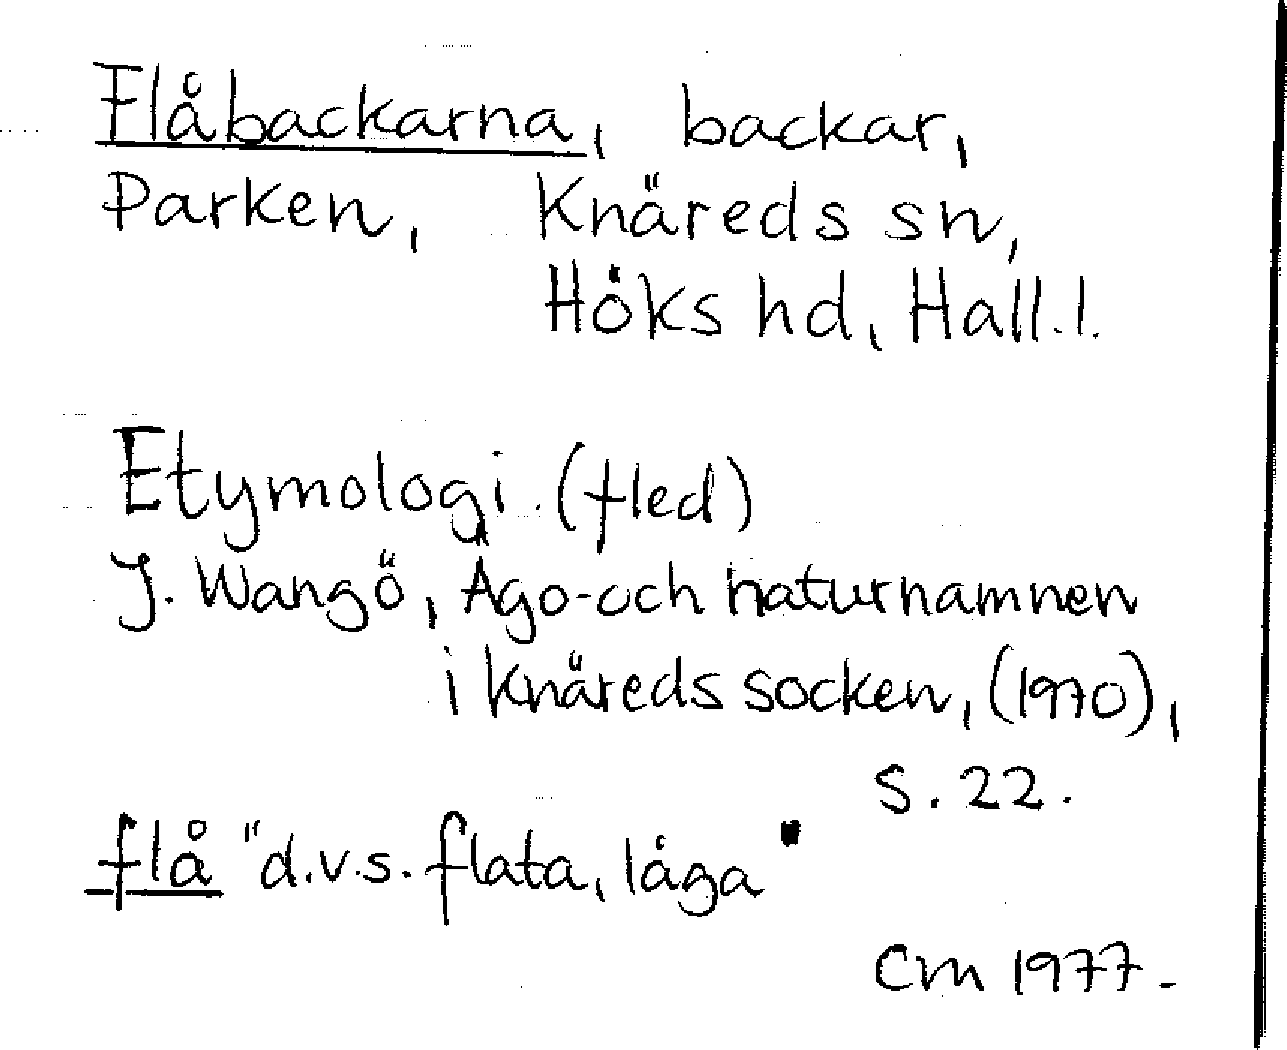 Flåbackarna, backar,
Parken, Knäreds sn,
Höks hd, Hall.l.
Etymologi. (fled)
J. Wangö, Ägo-och naturnamnen
i Knäreds socken, (1970),
s. 22.
flå "d.v.s. flata, låga"
Cm 1977.